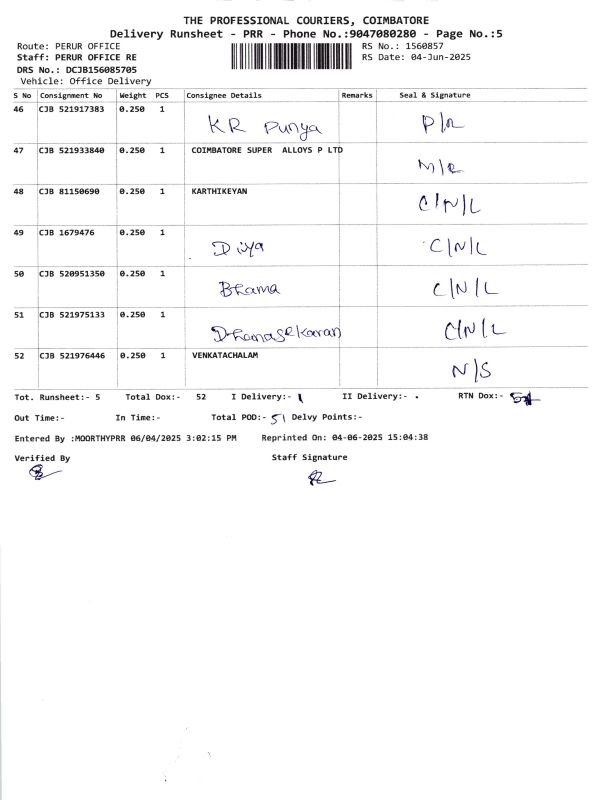 THE PROFESSIONAL COURIERS, COIMBATORE
Delivery Runsheet - PRR - Phone No.:9047080280 - Page No.:5
Route: PERUR OFFICE RS No.: 1560857
Staff: PERUR OFFICE RE RS Date: 04-Jun-2025
DRS No.: DCJB156085705
Vehicle: Office Delivery
S No Consignment No Weight PCS Consignee Details Remarks Seal & Signature
46 CJB 521917383 0.250 1 KR Punya P/R
47 CJB 521933840 0.250 1 COIMBATORE SUPER ALLOYS P LTD M/R
48 CJB 81150690 0.250 1 KARTHIKEYAN C/N/L
49 CJB 1679476 0.250 1 Divya C/N/L
50 CJB 520951350 0.250 1 Bhama C/N/L
51 CJB 521975133 0.250 1 Dhanasekaran C/N/L
52 CJB 521976446 0.250 1 VENKATACHALAM N/S
Tot. Runsheet:- 5 Total Dox:- 52 I Delivery:- 1 II Delivery:- . RTN Dox:-
Out Time:- In Time:- Total POD:- 51 Delvy Points:-
Entered By :MOORTHYPRR 06/04/2025 3:02:15 PM Reprinted On: 04-06-2025 15:04:38
Verified By Staff Signature